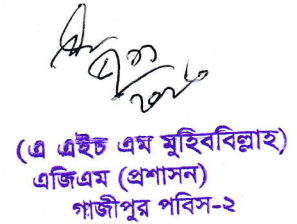 (এ এইচ এম মুহিববিল্লাহ)
এজিএম (প্রশাসন)
গাজীপুর পবিস-২